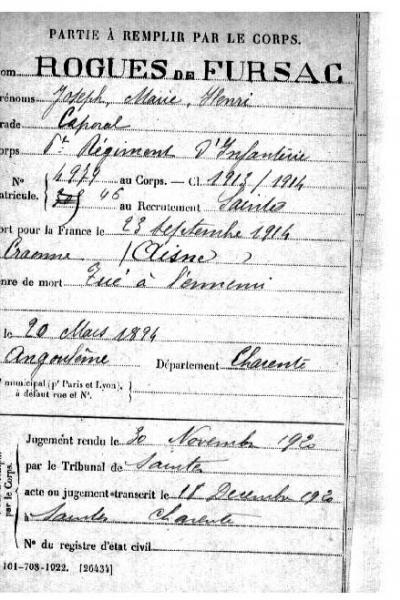 PARTIE À REMPLIR PAR LE CORPS.
om ROGUES DE FURSAC
rénoms Joseph, Marie, Henri
rade Caporal
orps 6e Régiment D'Infanterie
N° 4979 au Corps. — Cl. 1913 / 1914
atricule. 46 au Recrutement Saintes
ort pour la France le 23 Septembre 1914
Craonne (Aisne)
nre de mort Tué à l'ennemi
le 20 Mars 1894
Angoulême Département Charente
municipal (pr Paris et Lyon),
à défaut rue et N°.
Jugement rendu le 30 Novembre 1920
par le Tribunal de Saintes
acte ou jugement transcrit le Decembre 1920
à Saintes Charente
N° du registre d'état civil
par le Corps.
161-708-1922. [26434]